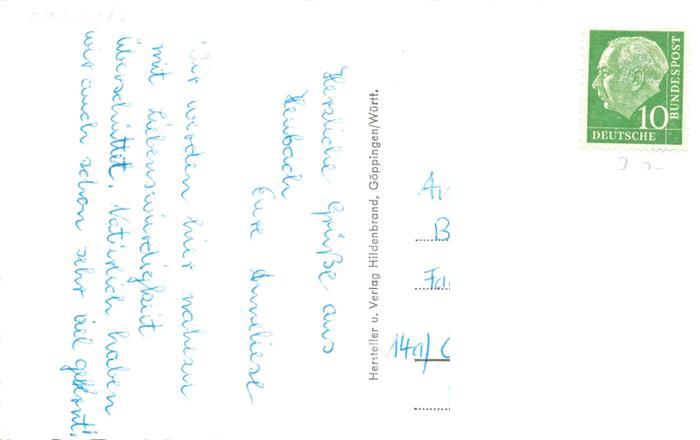 Herzliche Grüße aus
Heubach
Eure Anneliese
Wir werden hier nahezu
mit Liebenswürdigkeit
überschüttet. Natürlich haben
wir auch schon sehr viel
Hersteller u. Verlag Hildenbrand, Göppingen/Württ.
14a/
10
DEUTSCHE
BUNDESPOST